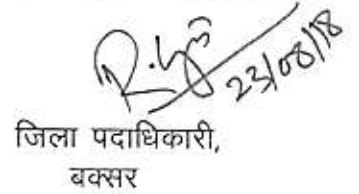 23/08/18
जिला पदाधिकारी,
बक्सर